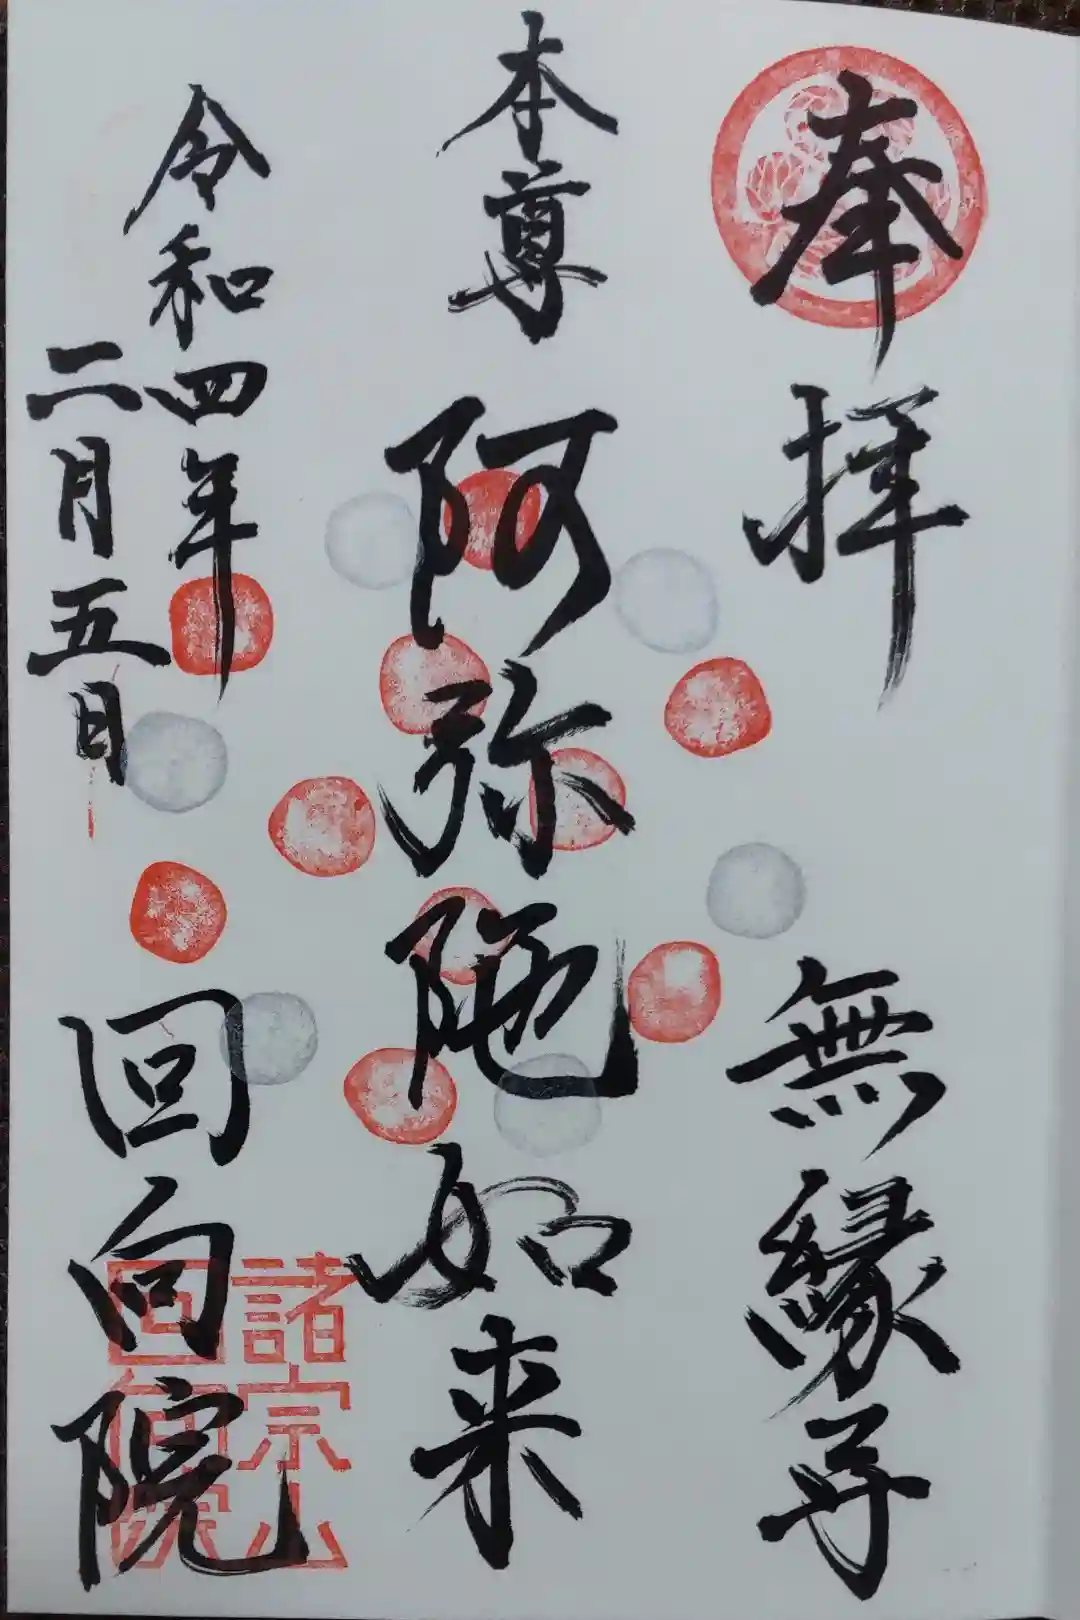 奉拝 無縁寺
本尊 阿弥陀如来
令和四年
二月五日
回向院
諸宗山
回向院